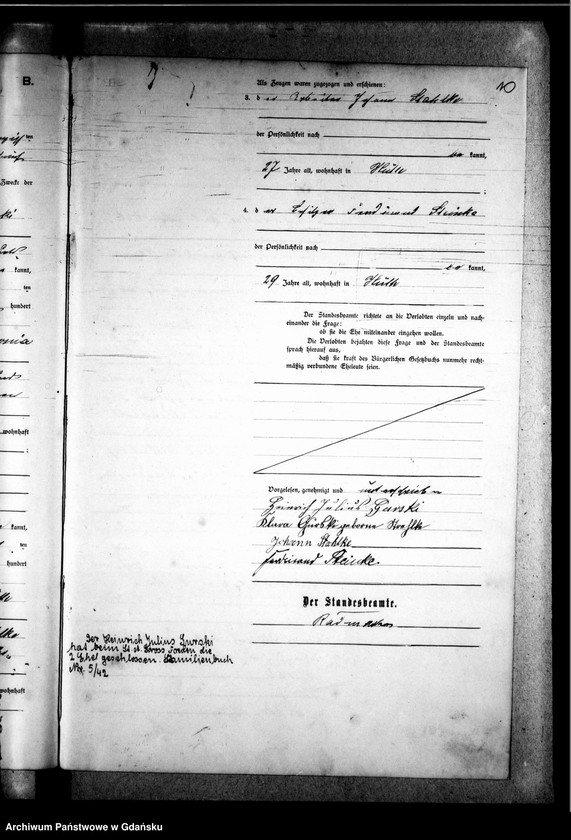 B.
10
Als Zeugen waren zugezogen und erschienen:
3. der Arbeiter Johann Stahlke
der Persönlichkeit nach
kannt,
27 Jahre alt, wohnhaft in Hütte
;
4. der Besitzer Ferdinand Steinke
der Persönlichkeit nach
kannt,
29 Jahre alt, wohnhaft in Hütte
Der Standesbeamte richtete an die Verlobten einzeln und nach-
einander die Frage:
ob sie die Ehe miteinander eingehen wollen.
Die Verlobten bejahten diese Frage und der Standesbeamte
sprach hierauf aus,
daß sie kraft des Bürgerlichen Gesetzbuchs nunmehr recht-
mäßig verbundene Eheleute seien.
Vorgelesen, genehmigt und unterschrieben
Heinrich Julius Gurski
Klara Gurski geborene
Johann Stahlke
Ferdinand Steinke.
Der Standesbeamte.
Radmacher
Der Heinrich Julius Gurski
hat beim St. A. Gross die
2 Ehe geschlossen. Familienbuch
Nr. 5/42
Zwecke der
kannt,
ten
hundert
wohnhaft
;
kannt,
ten
hundert
wohnhaft
Archiwum Państwowe w Gdańsku